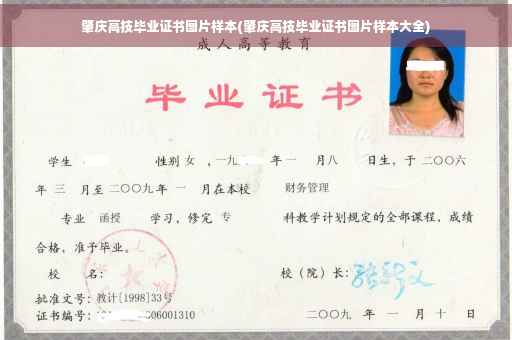 肇庆高技毕业证书图片样本(肇庆高技毕业证书图片样本大全)
成人高等教育
毕业证书
学生 性别 女 ,一九 年 一 月八 日生,于 二〇〇六
年 三 月至 二〇〇九 年 一 月在本校 财务管理
专业 函授 学习,修完 专 科教学计划规定的全部课程,成绩
合格,准予毕业。
校 名: 校(院)长:
批准文号:教计[1998]33号
证书编号: 06001310 二〇〇九 年 一 月 十 日